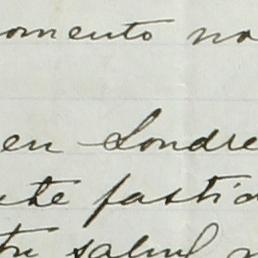 omento no
en Londre
te fastid
tu salud